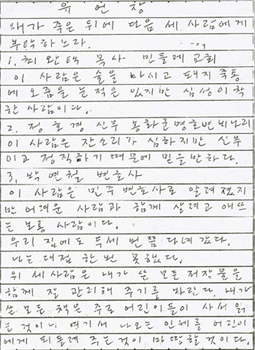 유 언 장
내가 죽은 뒤에 다음 세 사람에게
부탁하노라.
1. 최완택 목사 민들레 교회
이 사람은 술을 마시고 돼지 죽통
에 오줌을 눈 적은 있지만 심성이 착
한 사람이다.
2. 정호경 신부 봉화군 명호면 비나리
이 사람은 잔소리가 심하지만 신부
이고 정직하기 때문에 믿을만하다.
3. 박연철 변호사
이 사람은 민주 변호사로 알려졌지
만 어려운 사람과 함께 살려고 애쓰
는 보통 사람이다.
우리 집에도 두세 번쯤 다녀갔다.
나는 대접 한 번 못했다.
위 세 사람은 내가 쓴 모든 저작물을
함께 잘 관리해 주기를 바란다. 내가
쓴 모든 책은 주로 어린이들이 사서 읽
는 것이니 여기서 나오는 인세를 어린이
에게 되돌려 주는 것이 마땅할 것이다.